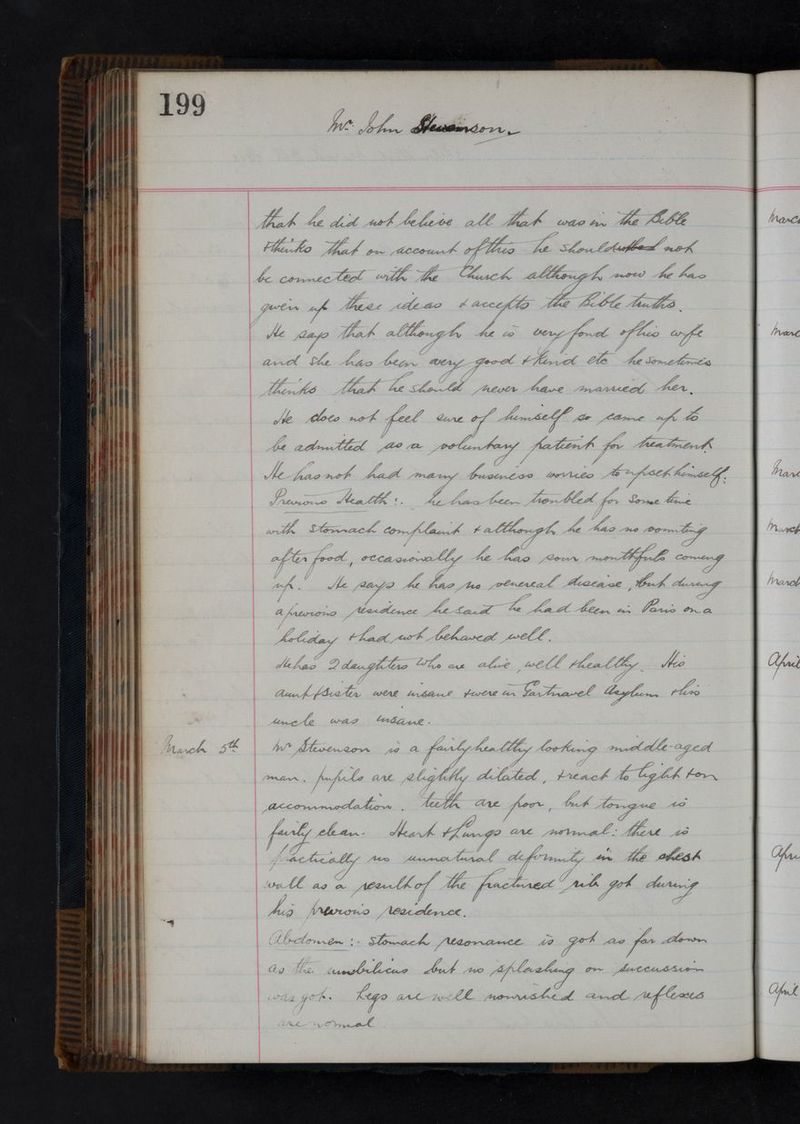 199
Mr. John Stevenson.
that he did not believe all that was in the Bible
& thinks that on account of this he should not
be connected with the Church although now he has
given up these ideas & accepts the Bible truths.
He says that although he is very fond of his wife
and she has been very good & kind etc he sometimes
thinks that he should never have married her.
He does not feel sure of himself so came up to
be admitted as a voluntary patient for treatment.
He has not had many business worries to upset himself.
Previous Health:. he has been troubled for some time
with stomach complaint & although he has no vomiting
after food, occasionally he has sour mouthfuls coming
up. He says he has no venereal disease, but during
a previous residence he said he had been in Paris on a
holiday & had not behaved well.
He has 2 daughters who are alive, well & healthy. His
aunt & sister were insane & were in Gartnavel Asylum & his
uncle was insane.
March 5th Mr Stevenson is a fairly healthy looking middle-aged
man. pupils are slightly dilated, & react to light & on
accommodation. teeth are poor, but tongue is
fairly clean. Heart & Lungs are normal: there is
practically no unnatural deformity in the chest
wall as a result of the fractured rib got during
his previous residence.
Abdomen:. stomach resonance is got as far down
as the umbilicus but no splashing on succussion
was got. Legs are well nourished and reflexes
are normal
March
April
April